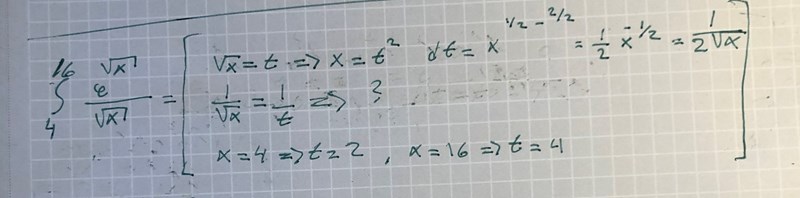 ∫₄¹⁶ e^√x / √x = [ √x = t => x = t² dt = x^(1/2 - 2/2) = 1/2 x^(-1/2) = 1/(2√x)
1/√x = 1/t => ?
x = 4 => t = 2 , x = 16 => t = 4 ]